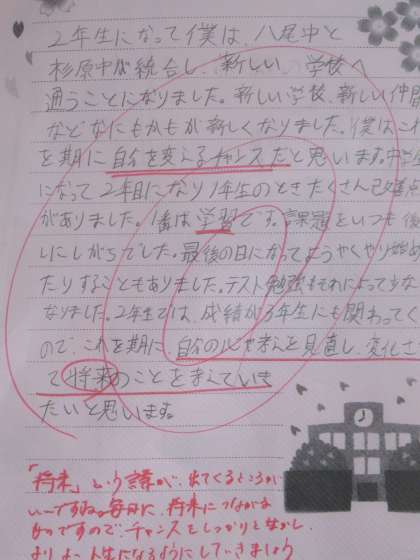 2年生になって僕は、八尾中と
杉原中が統合し、新しい学校へ
通うことになりました。新しい学校、新しい仲間
などなにもかもが新しくなりました。僕はこれ
を期に自分を変えるチャンスだと思います。中学生
になって2年目になり1年生のときたくさん改善点
がありました。1番は学習です。課題をいつも後
しにしがちでした。最後の日になってようやくやり始め
たりすることもありました。テスト勉強もそれによって少な
なりました。2年生では、成績が3年生にも関わってく
ので、これを期に、自分の心や考えを見直し、変化さ
て将来のことを考えていき
たいと思います。
「将来」という言葉が、出てくるところが
いーですね。毎日に、将来につながる
ものですので、チャンスをしっかりと生かし、
よりよい人生になるようにしていきましょう